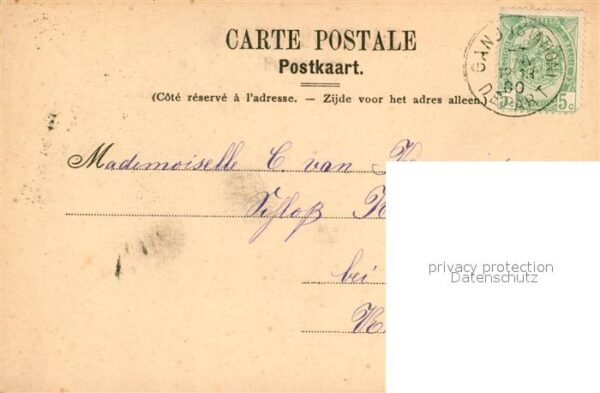 CARTE POSTALE
Postkaart.
(Côté réservé à l'adresse. — Zijde voor het adres alleen.)
GAND
DEPART
5c
Mademoiselle C. van
Schloß
bei
privacy protection
Datenschutz